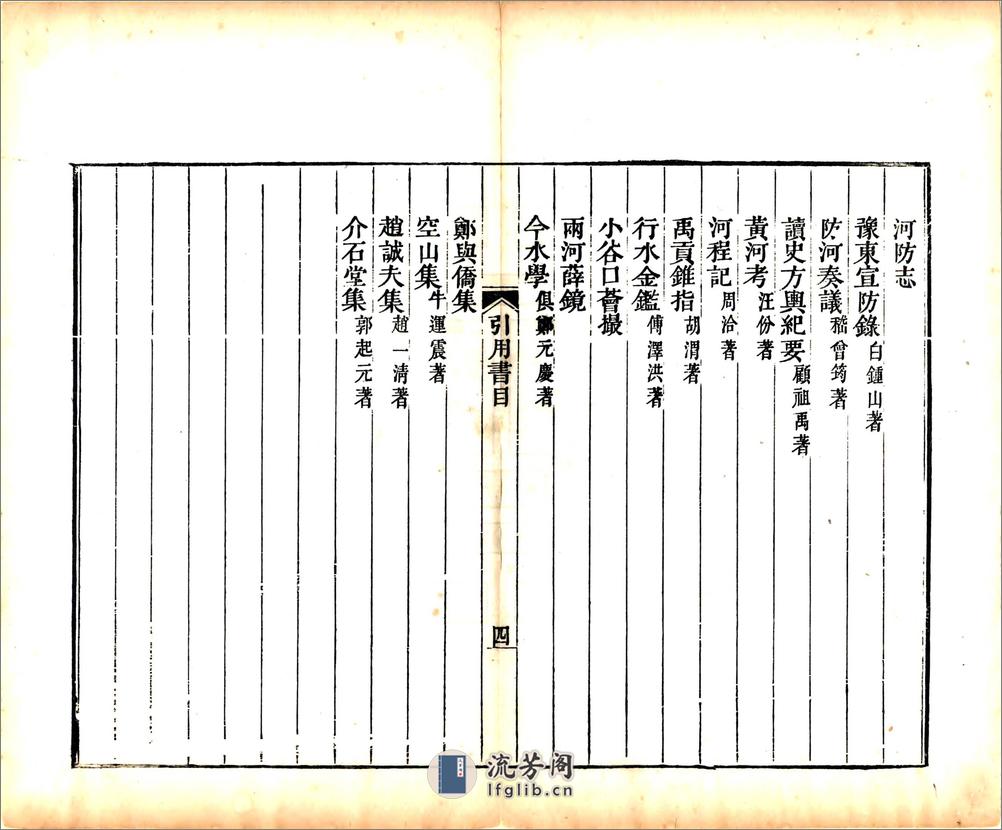 河防志
豫東宣防錄白鍾山著
防河奏議嵇曾筠著
讀史方輿紀要顧祖禹著
黃河考汪份著
河程記周洽著
禹貢錐指胡渭著
行水金鑑傅澤洪著
小谷口薈撮
兩河薛鏡
今水學俱鄭元慶著
引用書目
四
鄭與僑集
空山集牛運震著
趙誠夫集趙一清著
介石堂集郭起元著
流芳阁
lfglib.cn